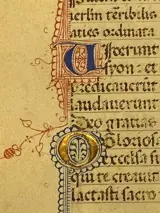 aerlin teribilis
aties ordinata
Uiderunt
syon: et
predicauerūt
laudauerunt
Deo gratias
O Gloriosa
excelsa s
qui te creauit
lactasti sacro